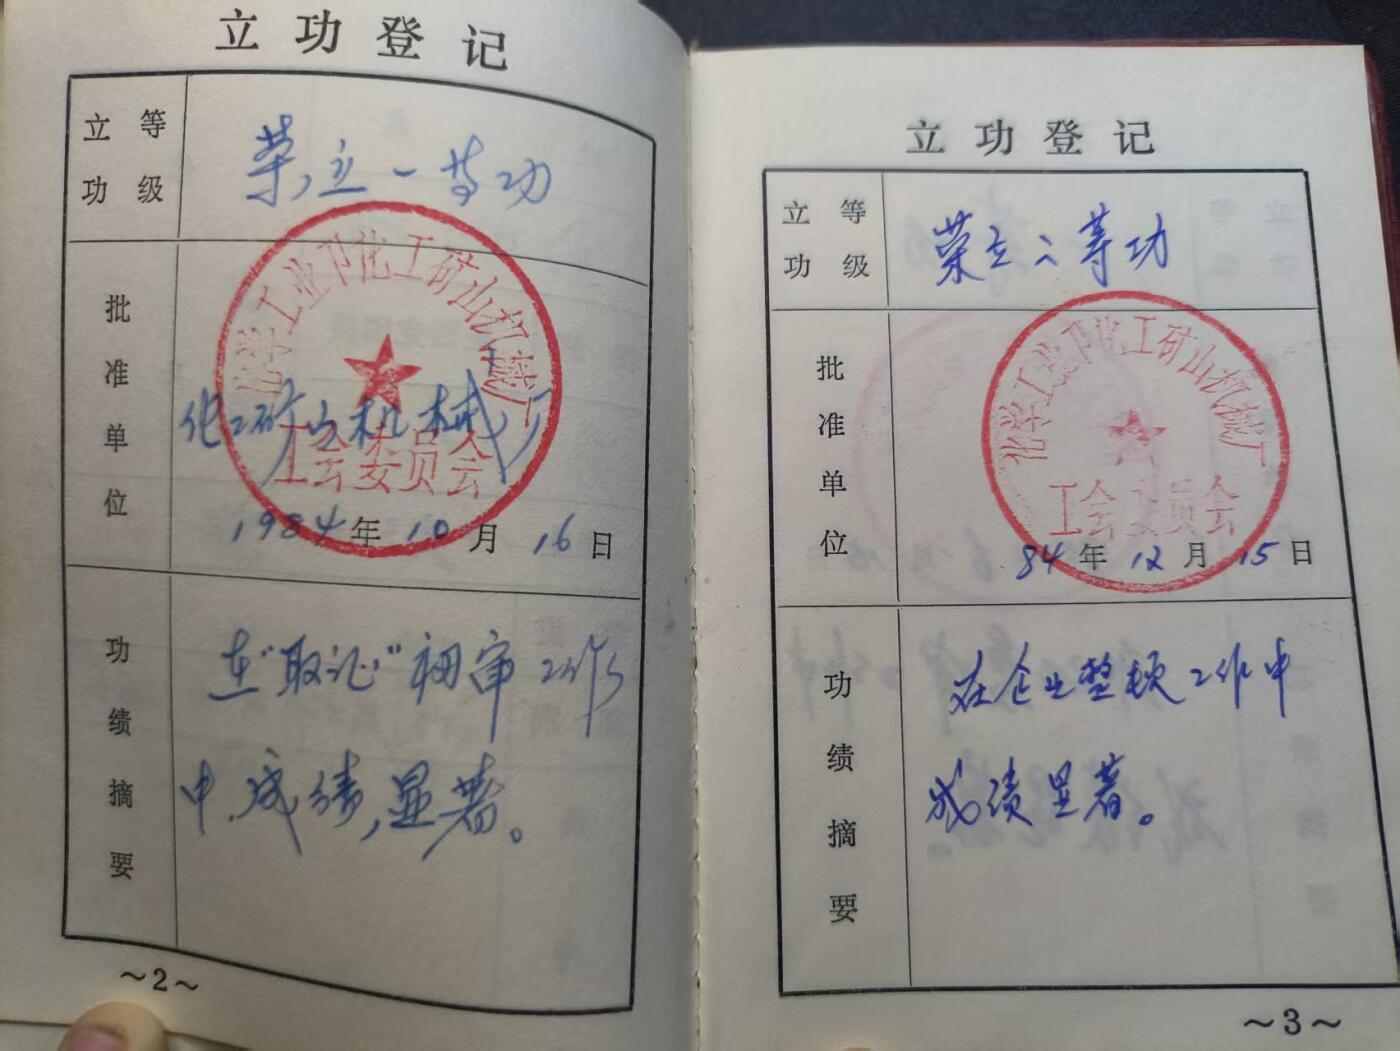 立功登记
立功 等级
荣立一等功
批准单位
化学工业部化工矿山机械厂
工会委员会
化工矿山机械厂
1984年10月16日
功绩摘要
在"取证"初审工作
中,成绩,显著。
~2~
立功登记
立功 等级
荣立二等功
批准单位
化学工业部化工矿山机械厂
工会委员会
84年12月15日
功绩摘要
在企业整顿工作中
成绩显著。
~3~